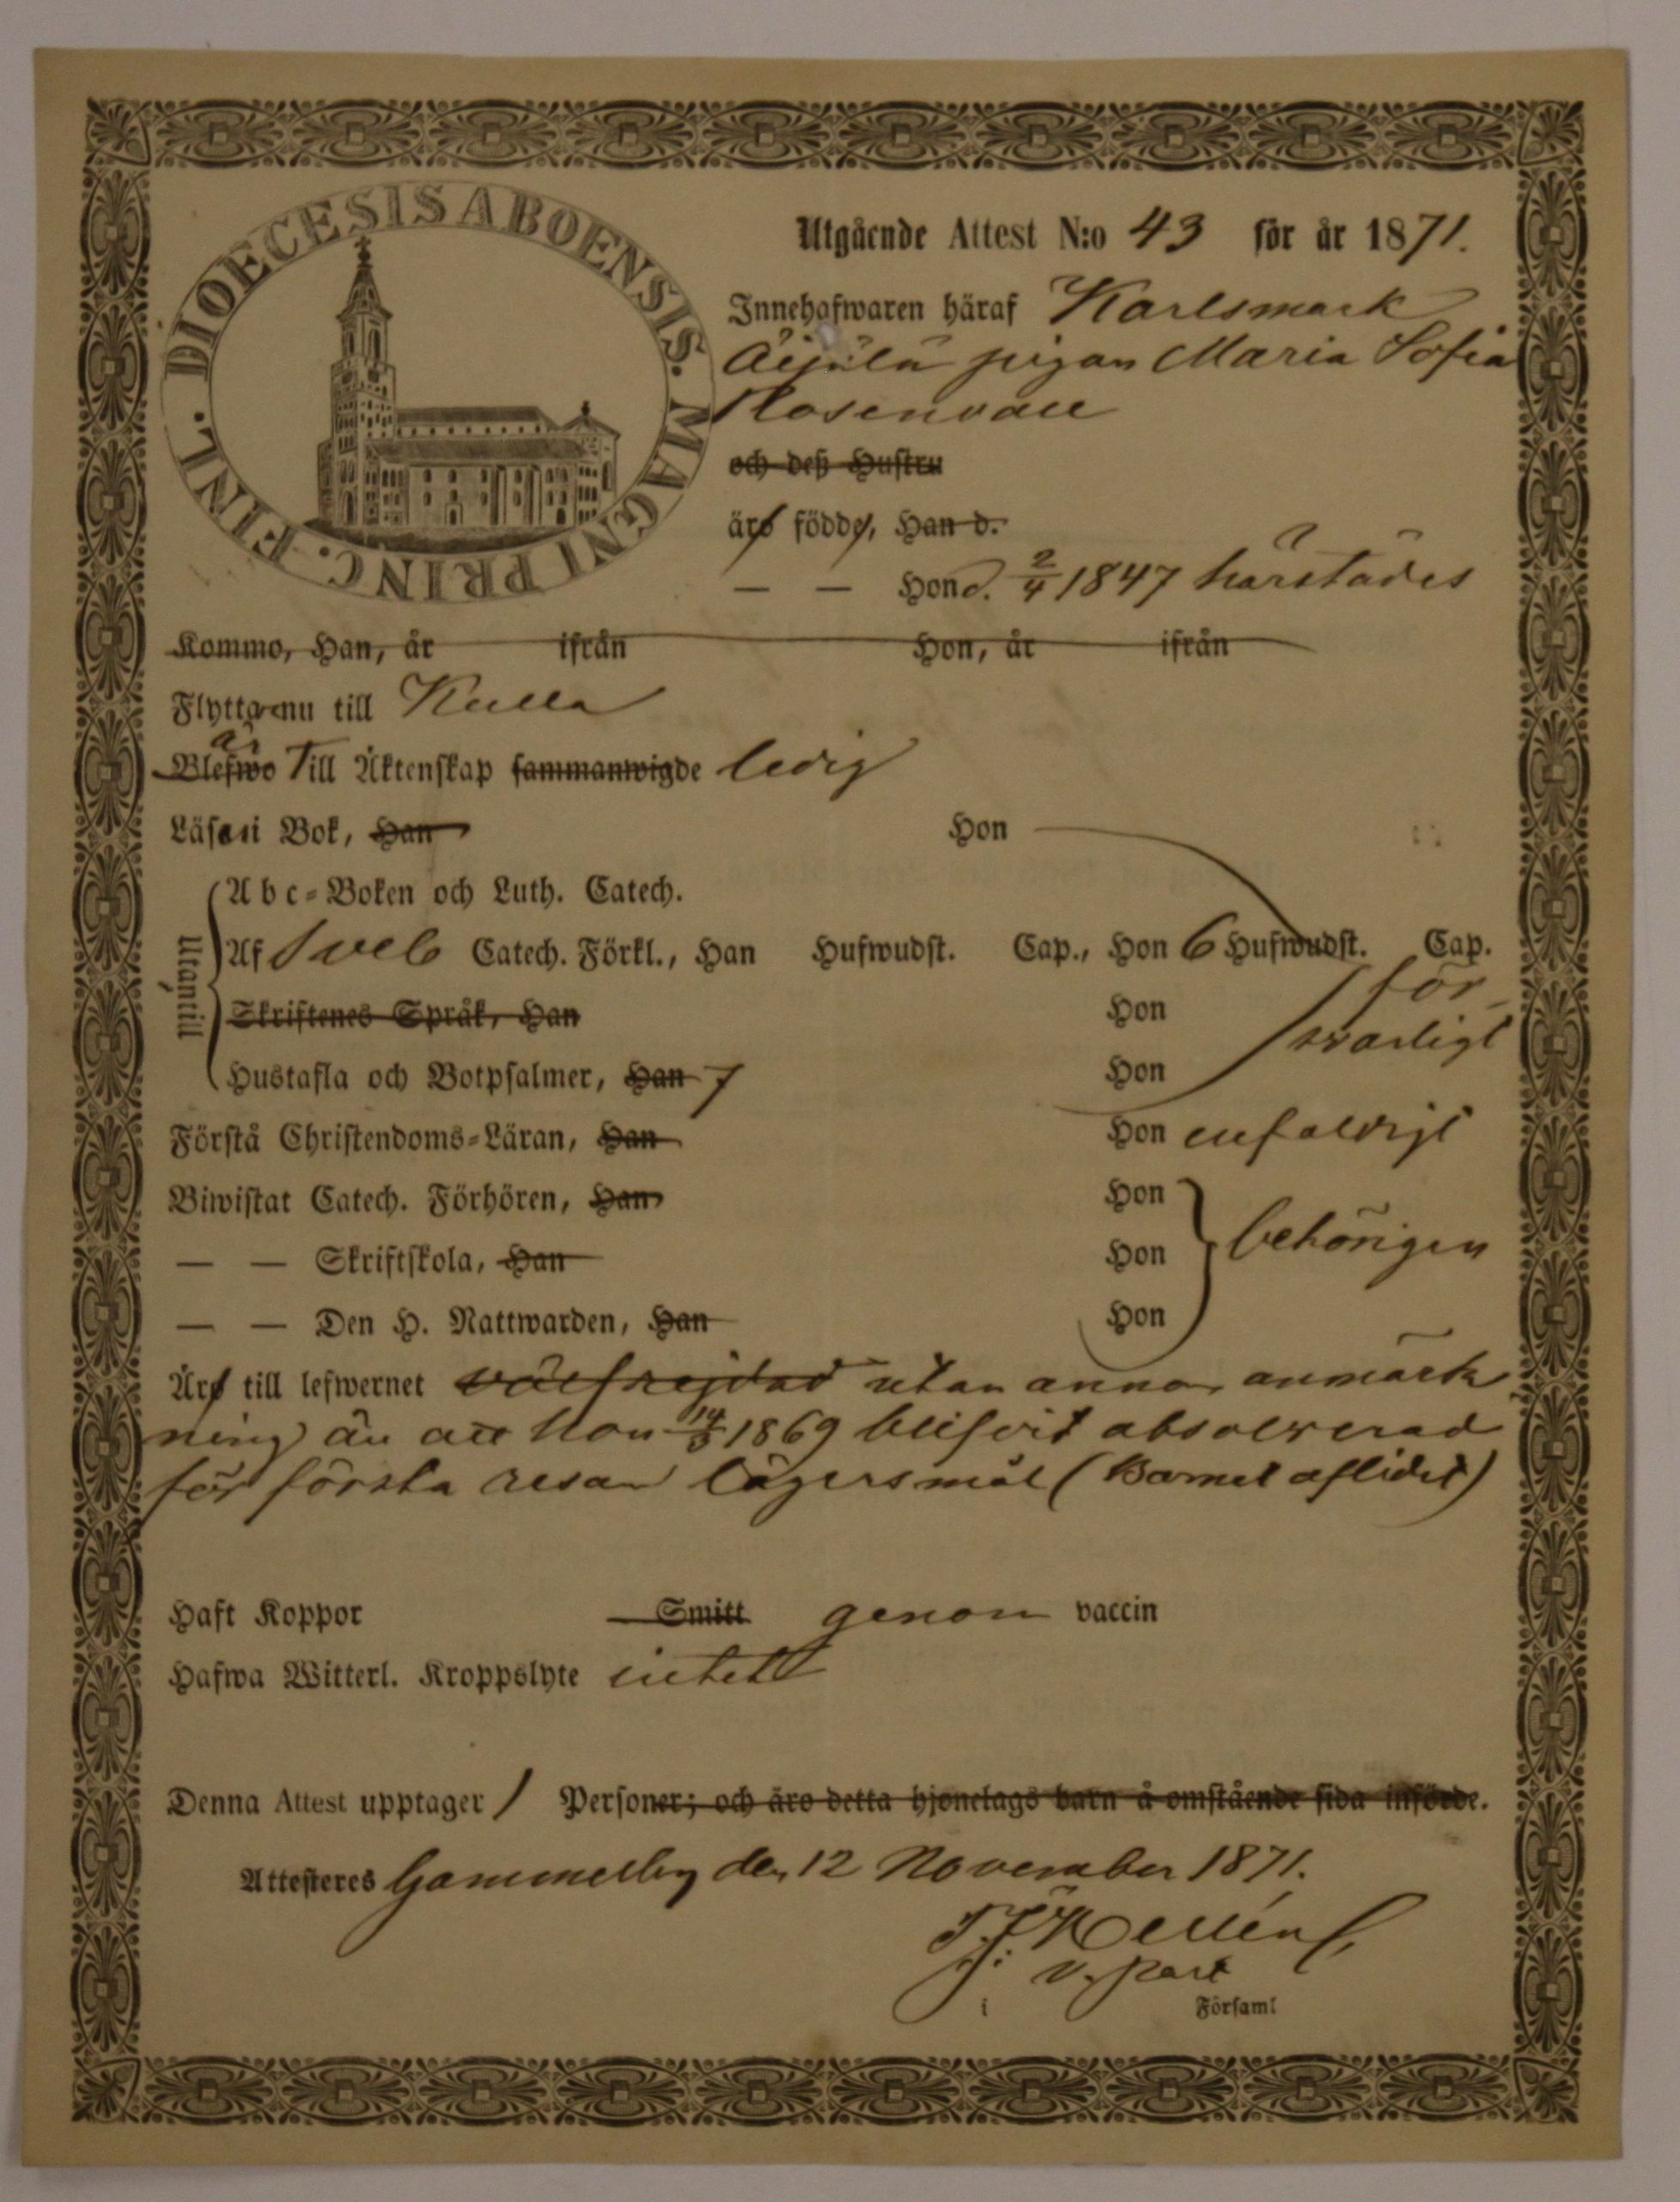 DIOECESIS ABOENSIS. MAGNI PRINC. FINL.
Utgående Attest N:o 43 för år 1871.
Innehafwaren häraf Karlsmark
pigan Maria Sofia
Rosenvall
och deß Hustru
äro födde, Han d.
— — Hon d. 2/4 1847 härstädes
Kommo, Han, år ifrån Hon, år ifrån
Flytta nu till Kulla
är
Blefwo Till Äktenskap sammanwigde ledig
Läsa i Bok, Han Hon
Utantill
A b c-Boken och Luth. Catech.
Af Sveb Catech. Förkl., Han Hufwudst. Cap., Hon 6 Hufwudst. Cap.
för-
Skriftenes Språk, Han Hon
svarligt
Hustafla och Botpsalmer, Han 7 Hon
Förstå Christendoms-Läran, Han Hon enfaldigt
Biwistat Catech. Förhören, Han Hon
— — Skriftskola, Han Hon behörigen
— — Den H. Nattwarden, Han Hon
Äro till lefwernet välfrejdad utan annan anmärk
ning än att hon 14/3 1869 blifvit absolverad
för första resan lägersmål (Barnet aflidit)
Haft Koppor Smitt genom vaccin
Hafwa Witterl. Kroppslyte intet
Denna Attest upptager 1 Personer; och äro detta hjonelags barn å omstående sida införde.
Attesteres Gammelby den 12 November 1871.
v. past
i Församl